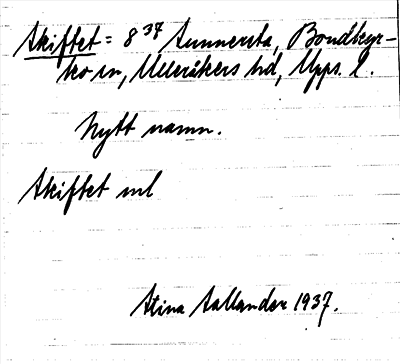 Skiftet = 8³⁷ Sunnersta, Bondkyr-
ko sn, Ulleråkers hd, Upps. l.
Nytt namn.
Skiftet ml
Stina Sallander 1937.